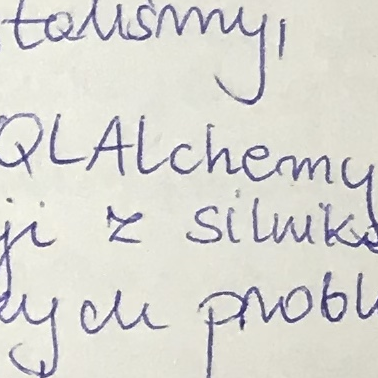 taliśmy,
QLAlchemy
ji z silnik
ych probl